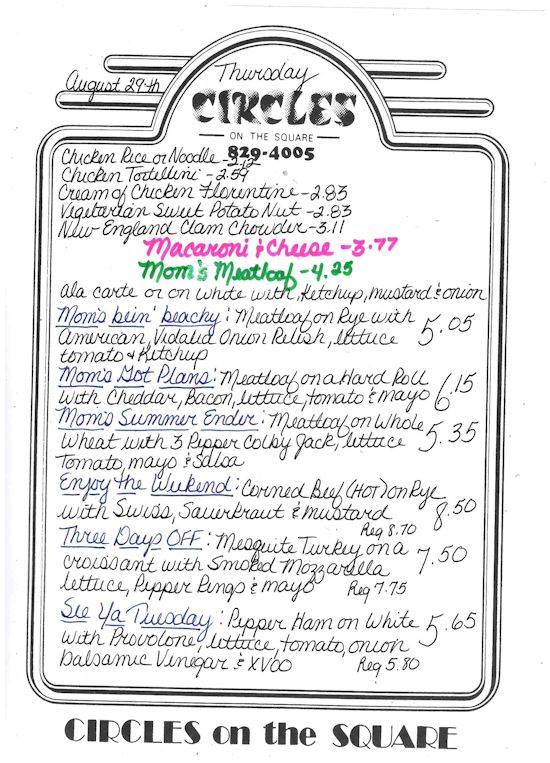 August 29th
Thursday
CIRCLES
ON THE SQUARE
829-4005
Chicken Rice or Noodle - 2.12
Chicken Tortellini - 2.59
Cream of Chicken Florentine - 2.83
Vegetarian Sweet Potato Nut - 2.83
New England Clam Chowder - 3.11
Macaroni & Cheese - 3.77
Mom's Meatloaf - 4.25
ala carte or on white with, Ketchup, mustard & onion
Mom's bein' beachy: Meatloaf on Rye with
American, Vidalia Onion Relish, lettuce 5.05
tomato & Ketchup
Mom's Got Plans: Meatloaf on a Hard Roll
with Cheddar, Bacon, lettuce, tomato & mayo 6.15
Mom's Summer Ender: Meatloaf on Whole
Wheat with 3 Pepper Colby Jack, lettuce 5.35
Tomato, mayo & Salsa
Enjoy the Weekend: Corned Beef (HOT) on Rye
with Swiss, Sauerkraut & mustard 8.50
Reg 8.70
Three Days OFF: Mesquite Turkey on a
croissant with Smoked Mozzarella 7.50
lettuce, Pepper Rings & mayo Reg 7.75
See Ya Tuesday: Pepper Ham on White 5.65
with Provolone, lettuce, tomato, onion
balsamic Vinegar & XVOO Reg 5.80
CIRCLES on the SQUARE